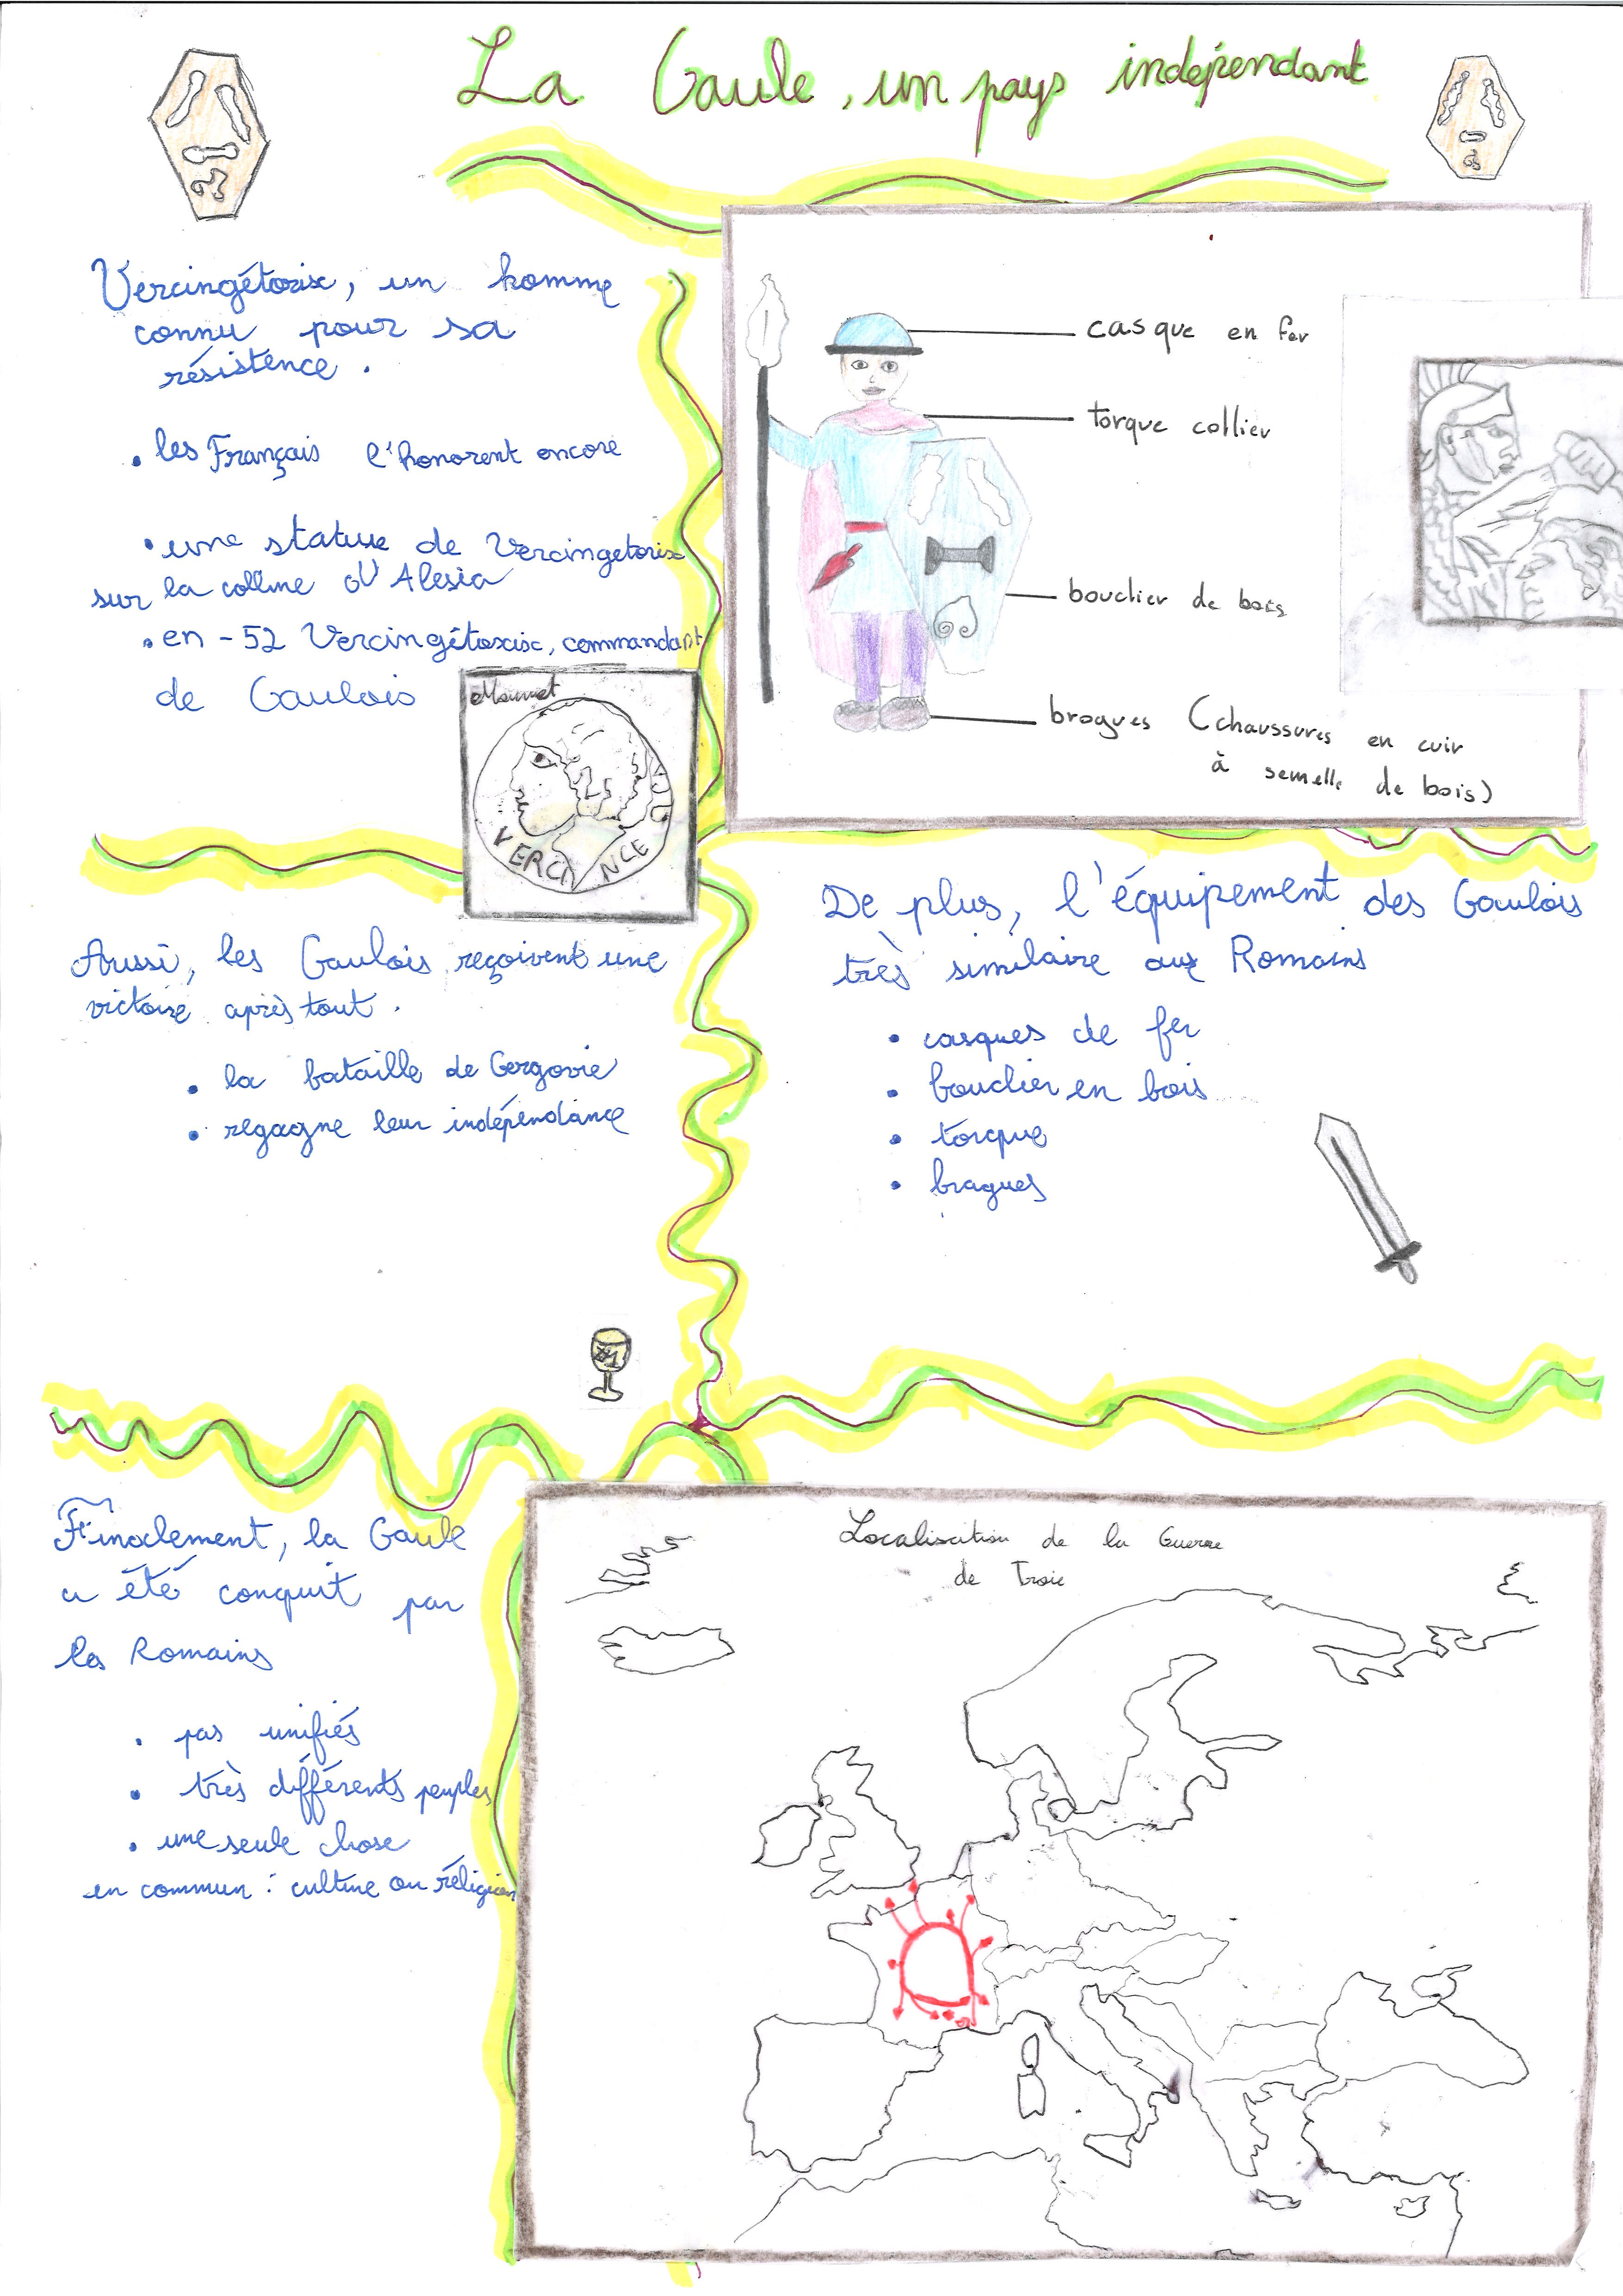 La Gaule, un pays indépendant
Vercingétorix, un homme
connu pour sa
résistence.
• les Français l'honorent encore
• une statue de Vercingetorix
sur la colline d'Alesia
• en -52 Vercingétorix, commandant
de Gaulois
VERCI NCE
casque en fer
torque collier
bouclier de bois
brogues (chaussures en cuir
à semelle de bois)
Aussi, les Gaulois reçoivent une
victoire après tout.
• la bataille de Gergovie
• regagne leur indépendance
#1
De plus, l'équipement des Gaulois
très similaire aux Romains
• casques de fer
• bouclier en bois
• torque
• bragues
Finalement, la Gaule
a été conquit par
les Romains
• pas unifiés
• très différents peuples
• une seule chose
en commun : culture ou réligion
Localisation de la Guerre
de Troie